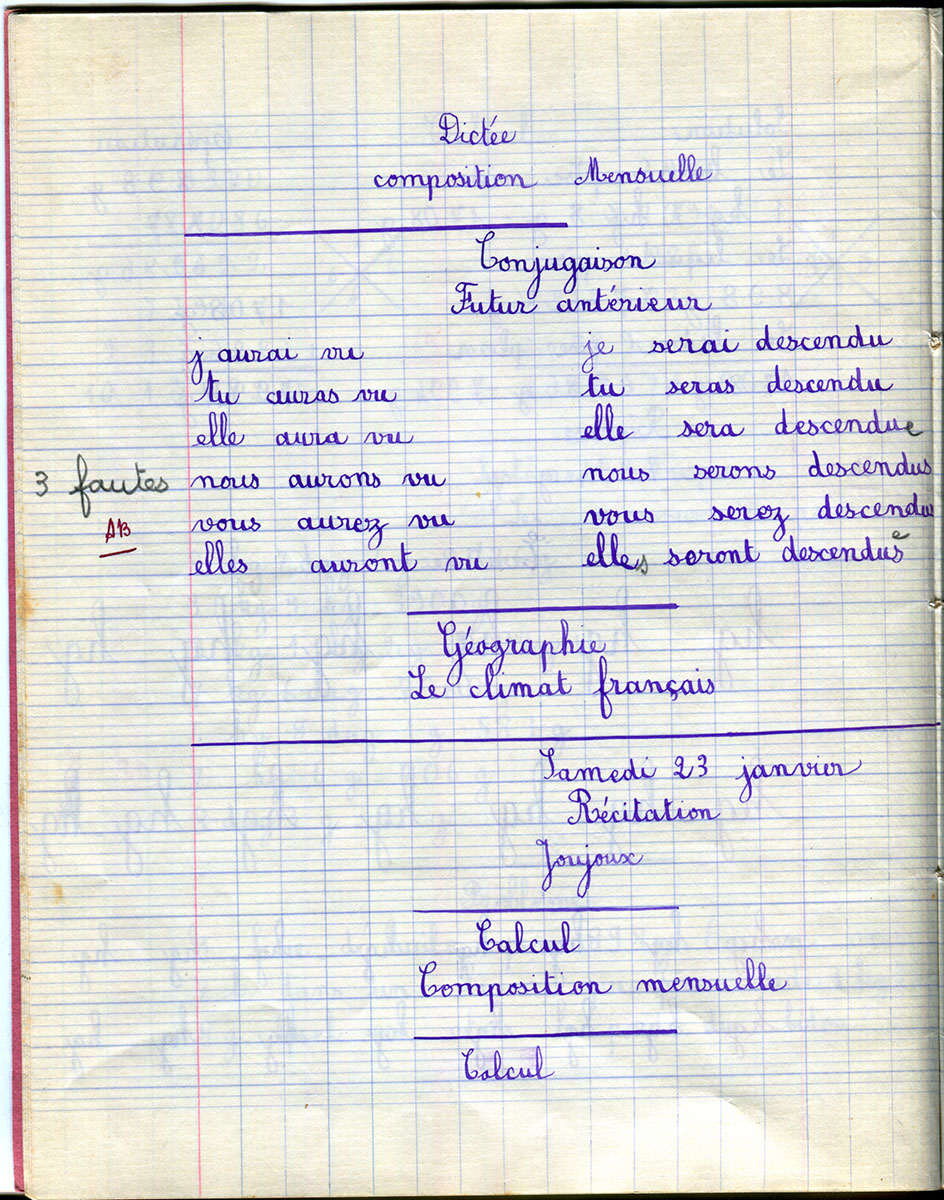 Dictée
composition Mensuelle
Conjugaison
Futur antérieur
j aurai vu je serai descendu
tu auras vu tu seras descendu
elle aura vu elle sera descendue
3 fautes nous aurons vu nous serons descendus
AB vous aurez vu vous serez descendu
elles auront vu elles seront descendues
Géographie
Le climat français
Samedi 23 janvier
Récitation
Joujoux
Calcul
Composition mensuelle
Calcul